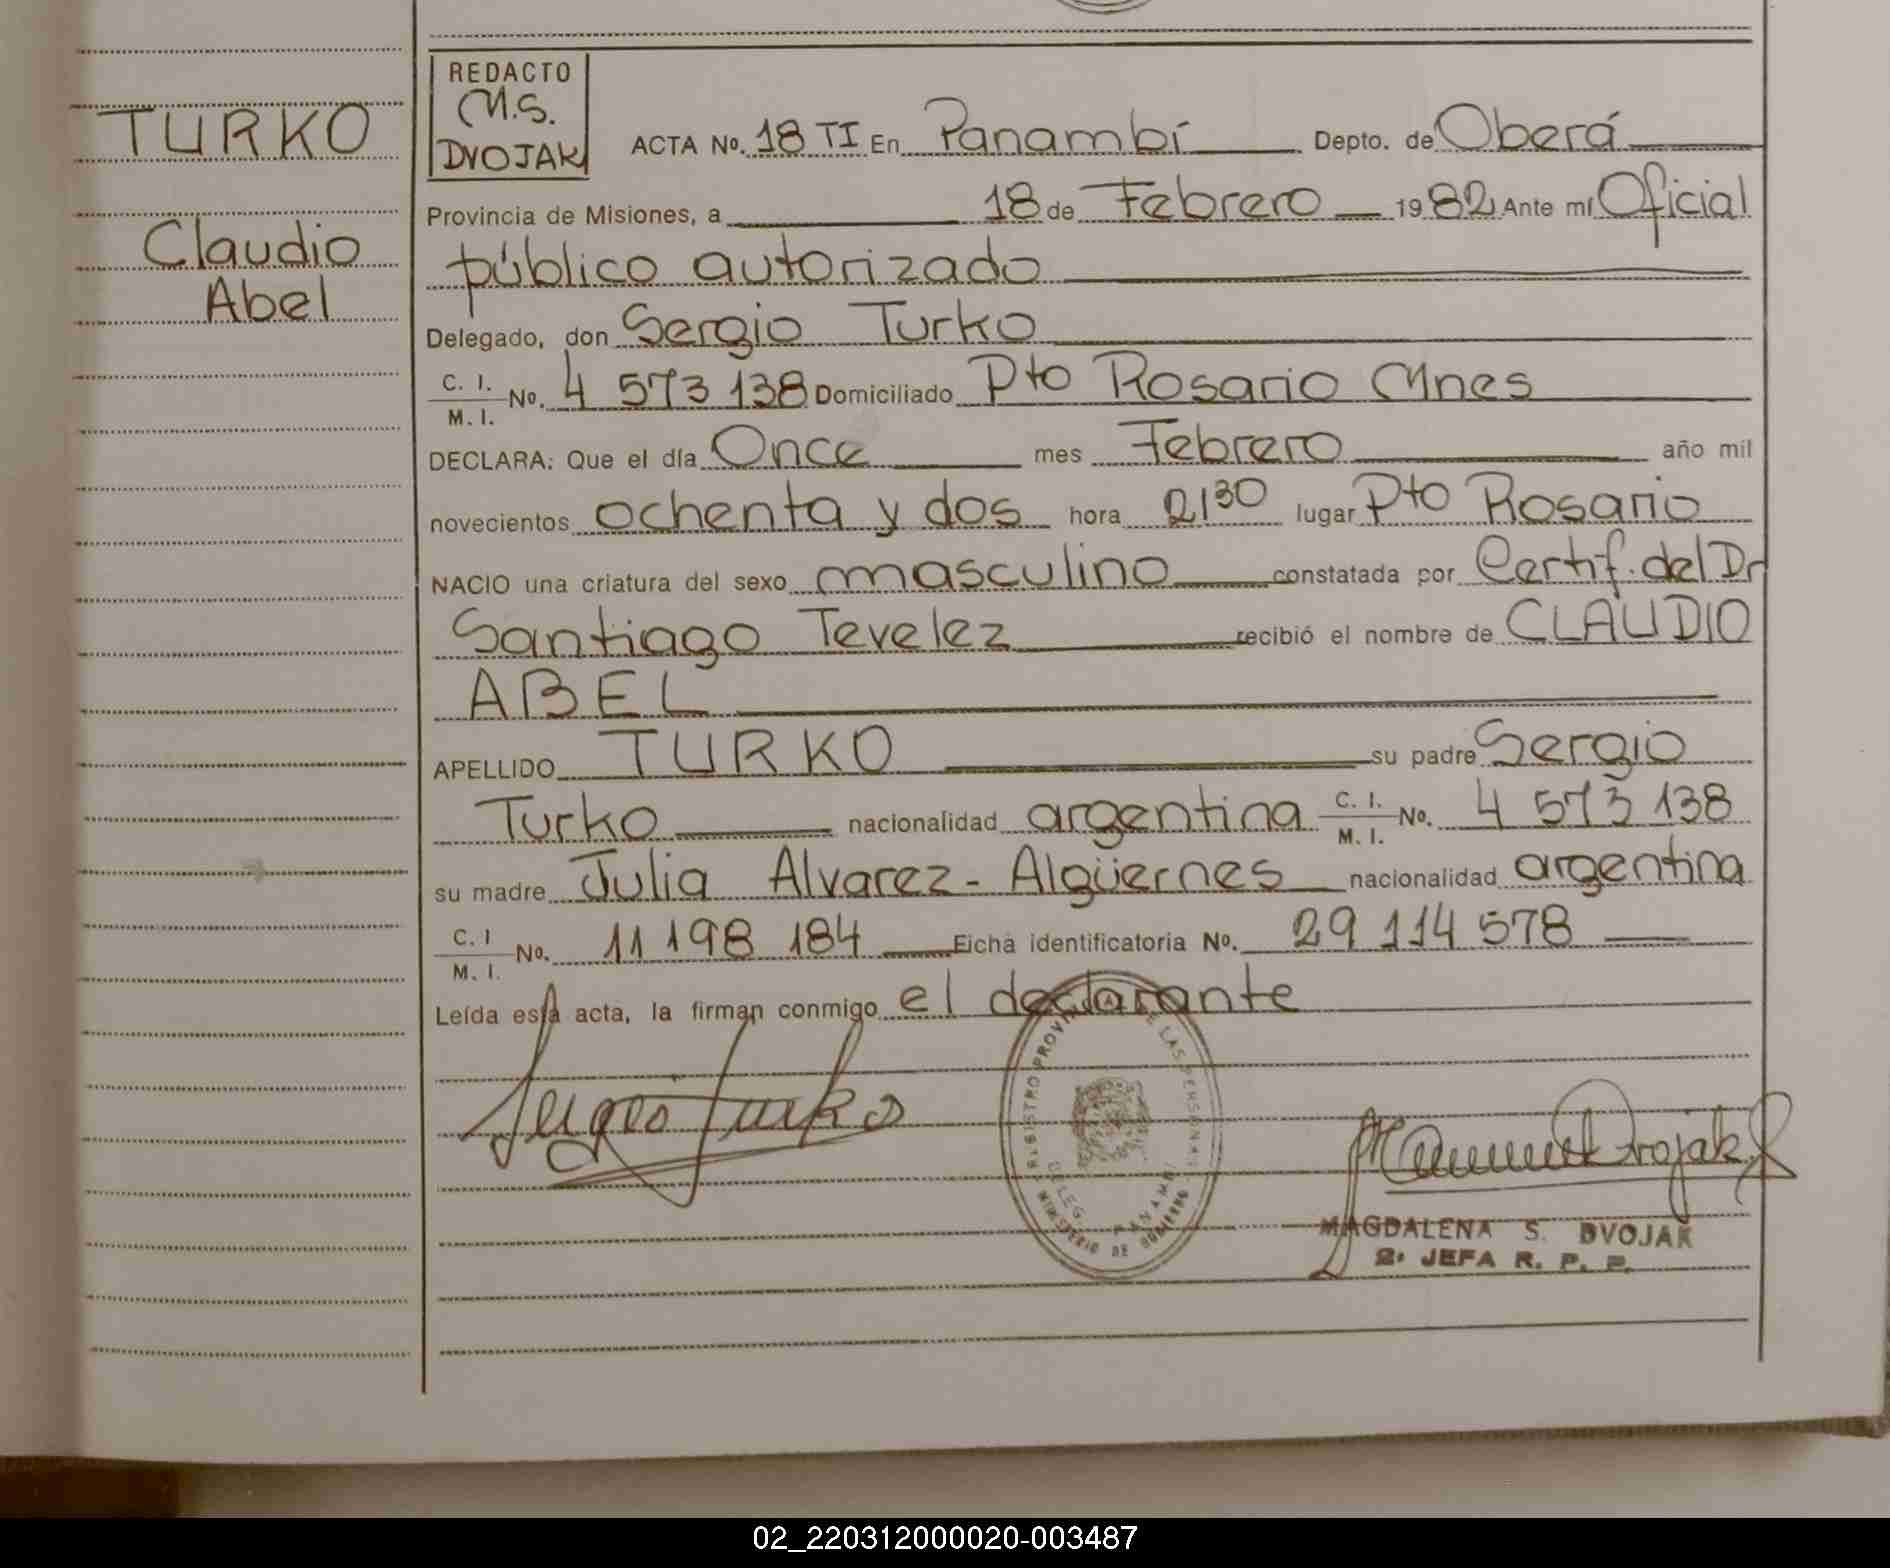 TURKO
Claudio
Abel
REDACTO
M.S.
DVOJAK
ACTA No. 18 TI En Panambí Depto. de Oberá
Provincia de Misiones, a 18 de Febrero 1982 Ante mí Oficial
público autorizado
Delegado, don Sergio Turko
C. I. / M. I. No. 4 573 138 Domiciliado Pto Rosario Mnes
DECLARA: Que el día Once mes Febrero año mil
novecientos ochenta y dos hora 2130 lugar Pto Rosario
NACIO una criatura del sexo masculino constatada por Certif. del Dr
Santiago Tevelez recibió el nombre de CLAUDIO
ABEL
APELLIDO TURKO su padre Sergio
Turko nacionalidad argentina C. I. / M. I. No. 4 573 138
su madre Julia Alvarez - Algüernes nacionalidad argentina
C. I / M. I. No. 11 198 184 Ficha identificatoria No. 29 114 578
Leída esta acta, la firman conmigo el declarante
Sergio Turko
REGISTRO PROVINCIAL DE LAS PERSONAS
DELEG. PANAMBI
MINISTERIO DE GOBIERNO
Dvojak
MAGDALENA S. DVOJAK
2ª JEFA R. P. P.
02_220312000020-003487